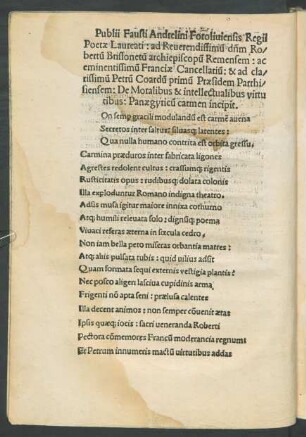 Publii Fausti Andrelini Foroliuiensis Regii
Poetæ Laureati: ad Reuerendissimū dn̄m Ro-
bertū Brissonetū archiepiscopū Remensem: ac
eminentissimū Franciæ Cancellariū: & ad cla-
rissimū Petrū Coardū primū Præsidem Parrhi-
siensem: De Moralibus & intellectualibus virtu
tibus: Panægyricū carmen incipit.
On semp gracili modulandū est carmē auena
Secretos inter saltus: siluasq; latentes:
Qua nulla humano contrita est orbita gressu.
Carmina præduros inter fabricata ligones
Agrestes redolent cultus: crassumq; rigentis
Rusticitatis opus: rodibusq; dolata colonis
Illa exploduntur Romano indigna theatro.
Adsis musa igitur maiore innixa cothurno
Atq; humili releuata solo: dignūq; poema
Viuaci referas æterna in sæcula cedro.
Non iam bella peto miseras orbantia matres:
Atq; aluis pulsata rubis: quid uilius adsit
Quam formata sequi externis vestigia plantis?
Nec posco aligeri lasciua cupidinis arma
Frigenti nō apta seni: præiusa calentes
Illa decent animos: non semper cōuenit ætas
Ipsis quæq; iocis: sacri ueneranda Roberti
Pectora cōmemores Francū moderantia regnum
Et Petrum innumeris mactū uirtutibus addas